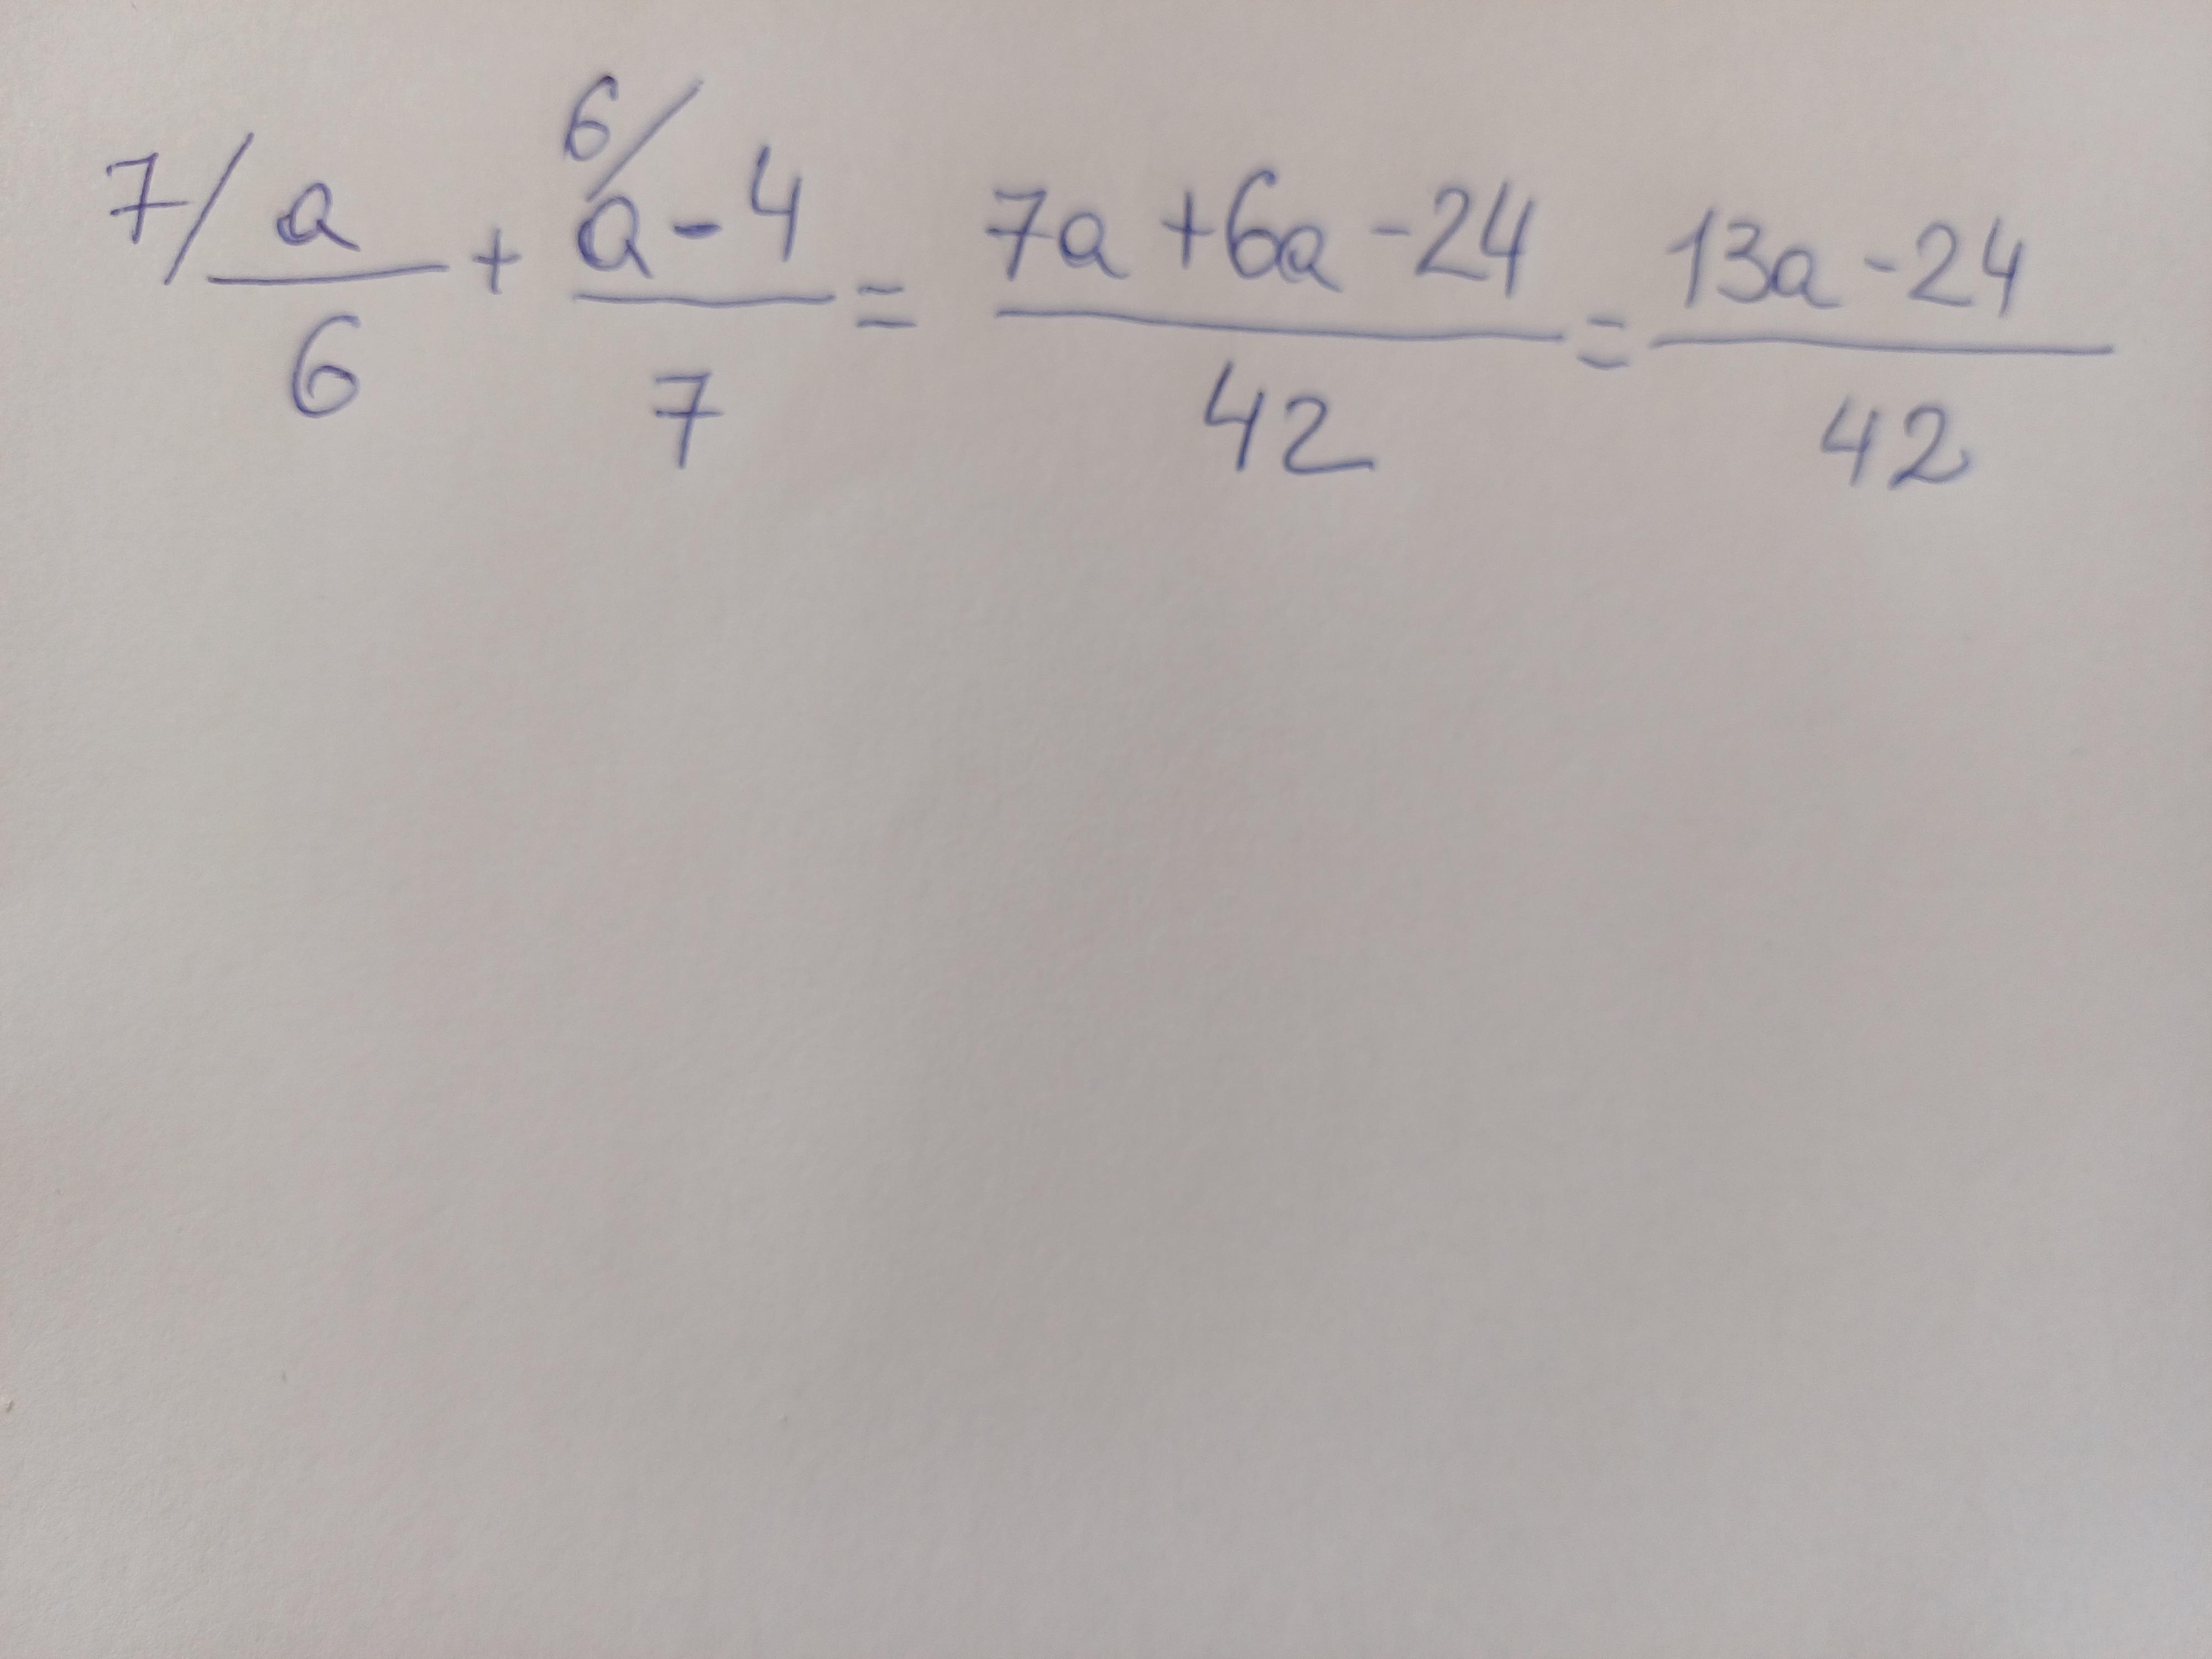 7/ a/6 + 6/ a-4/7 = 7a+6a-24/42 = 13a-24/42